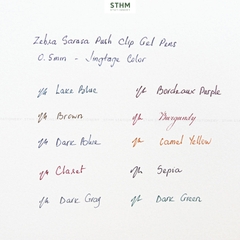 STHM
Zebra Sarasa Push Clip Gel Pens
0.5mm - Vintage Color
Lake Blue
Bordeaux Purple
Brown
Burgundy
Dark Blue
Camel Yellow
Claret
Sepia
Dark Gray
Dark Green